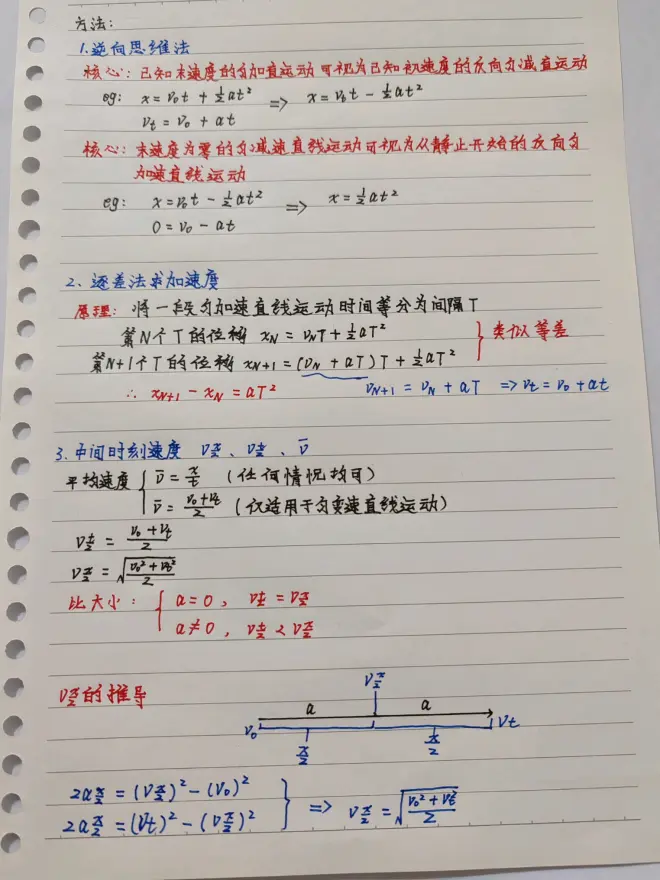 方法:
1.逆向思维法
核心: 已知末速度的匀加直运动可视为已知初速度的反向匀减直运动
eg: x = v₀t + ½at² => x = vₜt - ½at²
vₜ = v₀ + at
核心: 末速度为零的匀减速直线运动可视为从静止开始的反向匀
加速直线运动
eg: x = v₀t - ½at² => x = ½at²
0 = v₀ - at
2、逐差法求加速度
原理: 将一段匀加速直线运动时间等分为间隔T
第N个T的位移 x_N = v_N T + ½aT²
第N+1个T的位移 x_{N+1} = (v_N + aT)T + ½aT² } 类似等差
∴ x_{N+1} - x_N = aT² v_{N+1} = v_N + aT => vₜ = v₀ + at
3.中间时刻速度 v_{x/2}、v_{t/2}、v̄
平均速度 { v̄ = x/t (任何情况均可)
v̄ = (v₀+vₜ)/2 (仅适用于匀变速直线运动)
v_{t/2} = (v₀+vₜ)/2
v_{x/2} = √((v₀²+vₜ²)/2)
比大小: { a=0, v_{t/2} = v_{x/2}
a≠0, v_{t/2} < v_{x/2}
v_{x/2}的推导
v_{x/2}
a a
v₀ vₜ
x/2 x/2
2a x/2 = (v_{x/2})² - (v₀)²
2a x/2 = (vₜ)² - (v_{x/2})² } => v_{x/2} = √((v₀²+vₜ²)/2)